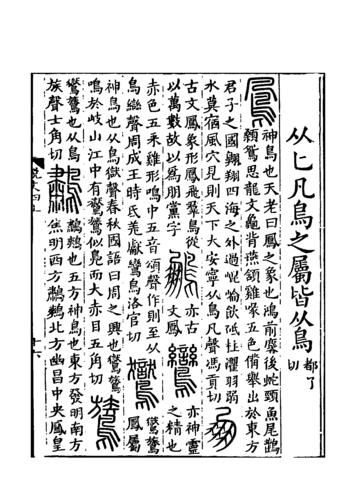 从匕凡鳥之屬皆从鳥都了切
鳳神鳥也天老曰鳳之象也鴻前麐後蛇頸魚尾鸛
顙鴛思龍文龜背燕頷雞喙五色備舉出於東方
君子之國翺翔四海之外過崐崘飲砥柱濯羽弱
水莫宿風穴見則天下大安寧从鳥凡聲馮貢切
朋古文鳳象形鳳飛羣鳥從
以萬數故以爲朋黨字
鵬亦古
文鳳
鸞亦神靈
之精也
赤色五采雞形鳴中五音頌聲作則至从
鳥䜌聲周成王時氐羌獻鸞鳥洛官切
鸑鸑鷟
鳳屬
神鳥也从鳥獄聲春秋國語曰周之興也鸑鷟
鳴於岐山江中有鸑鷟似鳧而大赤目五角切
鷟鸑鷟也从鳥
族聲士角切
鷫鷫鷞也五方神鳥也東方發明南方
焦明西方鷫鷞北方幽昌中央鳳皇
說文四上
十六